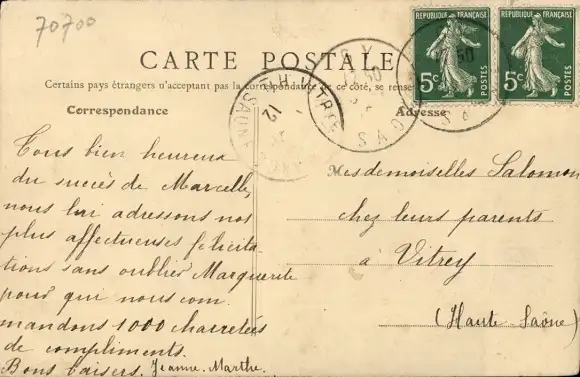 70700
CARTE POSTALE
Certains pays étrangers n'acceptant pas la correspondance de ce côté, se
Correspondance
Adresse
RÉPUBLIQUE FRANÇAISE
5c POSTES
RÉPUBLIQUE FRANÇAISE
5c POSTES
Tous bien heureux
du succès de Marcelle,
nous lui adressons nos
plus affectueuses félicita-
tions sans oublier Marguerite
pour qui nous com
mandons 1000 charretées
de compliments.
Bons baisers. Jeanne. Marthe.
Mesdemoiselles Salomon
chez leurs parents
à Vitrey
(Haute-Saône)